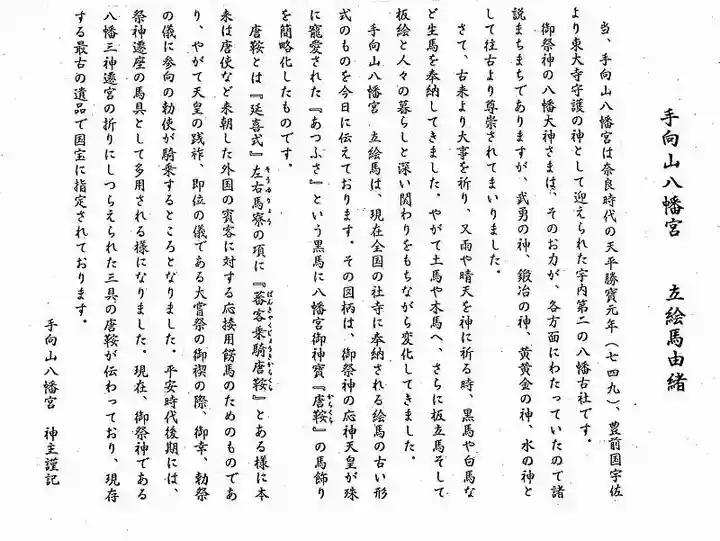 手向山八幡宮　立絵馬由緒
当、手向山八幡宮は奈良時代の天平勝寶元年（七四九）、豊前国宇佐
より東大寺守護の神として迎えられた宇内第二の八幡古社です。
御祭神の八幡大神さまは、そのお力が、各方面にわたっていたので諸
説まちまちでありますが、武勇の神、鍛冶の神、黄黄金の神、水の神と
して往古より尊崇されてまいりました。
さて、古来より大事を祈り、又雨や晴天を神に祈る時、黒馬や白馬な
ど生馬を奉納してきました。やがて土馬や木馬へ、さらに板立馬そして
板絵と人々の暮らしと深い関わりをもちながら変化してきました。
手向山八幡宮　立絵馬は、現在全国の社寺に奉納される絵馬の古い形
式のものを今日に伝えております。その図柄は、御祭神の応神天皇が殊
に寵愛された『あつふさ』という黒馬に八幡宮御神寶『唐鞍』の馬飾り
を簡略化したものです。
唐鞍とは『延喜式』左右馬寮の項に『蕃客乗騎唐鞍』とある様に本
来は唐使など来朝した外国の賓客に対する応接用餝馬のためのものであ
り、やがて天皇の践祚、即位の儀である大嘗祭の御禊の際、御幸、勅祭
の儀に参向の勅使が騎乗するところとなりました。平安時代後期には、
祭神遷座の馬具として多用される様になりました。現在、御祭神である
八幡三神遷宮の折りにしつらえられた三具の唐鞍が伝わっており、現存
する最古の遺品で国宝に指定されております。
手向山八幡宮　神主謹記